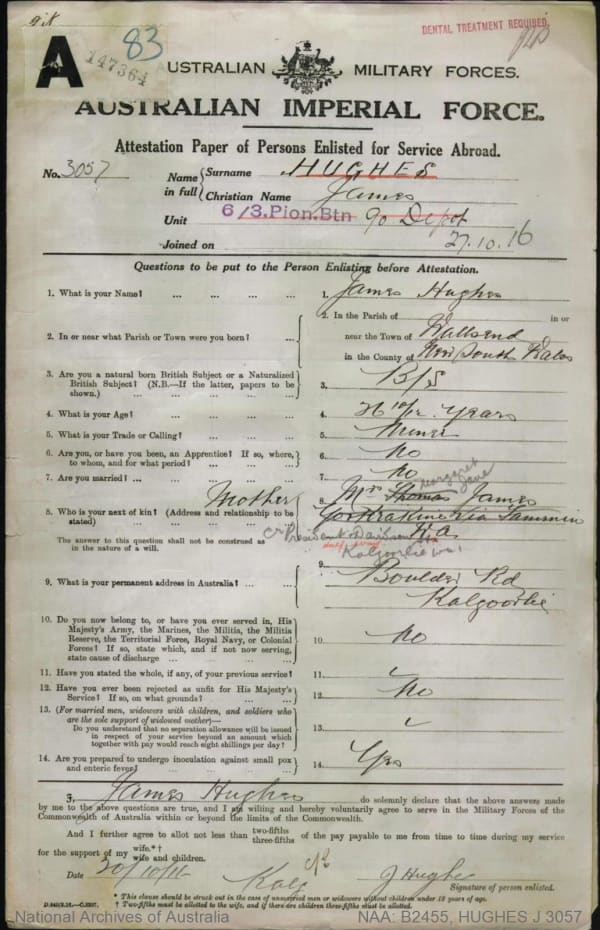 DENTAL TREATMENT REQUIRED
83
147364
AUSTRALIAN MILITARY FORCES.
AUSTRALIAN IMPERIAL FORCE.
Attestation Paper of Persons Enlisted for Service Abroad.
No. 3057 Name in full { Surname HUGHES
Christian Name James
Unit 6/3.Pion.Btn 90 Depot
Joined on 27.10.16
Questions to be put to the Person Enlisting before Attestation.
1. What is your Name? ... ... ... ... 1. James Hughes
2. In or near what Parish or Town were you born? ... ... 2. In the Parish of in or
near the Town of Wallsend
in the County of New South Wales
3. Are you a natural born British Subject or a Naturalized
British Subject? (N.B.—If the latter, papers to be
shown.) ... ... ... ... ... 3. B/S
4. What is your Age? ... ... ... ... 4. 26 10/12 Years
5. What is your Trade or Calling? ... ... ... 5. Miner
6. Are you, or have you been, an Apprentice? If so, where,
to whom, and for what period? ... ... ... 6. No
7. Are you married? ... ... ... ... 7. No
Margaret Jane
Mother 8. Mrs Thomas James
8. Who is your next of kin? (Address and relationship to be
stated) ... ... ... ... Yorkrakine Via Tammin
W.A
The answer to this question shall not be construed as
in the nature of a will.
President Davidson
Kalgoorlie W.A.
9. What is your permanent address in Australia? ... ... 9. Boulder Rd
Kalgoorlie
10. Do you now belong to, or have you ever served in, His
Majesty's Army, the Marines, the Militia, the Militia
Reserve, the Territorial Force, Royal Navy, or Colonial
Forces? If so, state which, and if not now serving,
state cause of discharge ... ... ... ... 10. No
11. Have you stated the whole, if any, of your previous service? 11.
12. Have you ever been rejected as unfit for His Majesty's
Service? If so, on what grounds? ... ... ... 12. No
13. (For married men, widowers with children, and soldiers who
are the sole support of widowed mother)—
Do you understand that no separation allowance will be issued
in respect of your service beyond an amount which
together with pay would reach eight shillings per day? 13.
14. Are you prepared to undergo inoculation against small pox
and enteric fever? ... ... ... ... 14. Yes
I, James Hughes do solemnly declare that the above answers made
by me to the above questions are true, and I am willing and hereby voluntarily agree to serve in the Military Forces of the
Commonwealth of Australia within or beyond the limits of the Commonwealth.
And I further agree to allot not less than two-fifths three-fifths of the pay payable to me from time to time during my service
for the support of my wife.*† wife and children.
Date 30/10/16 Kalg J Hughes
Signature of person enlisted.
* This clause should be struck out in the case of unmarried men or widowers without children under 18 years of age.
† Two-fifths must be allotted to the wife, and if there are children three-fifths must be allotted.
National Archives of Australia NAA: B2455, HUGHES J 3057